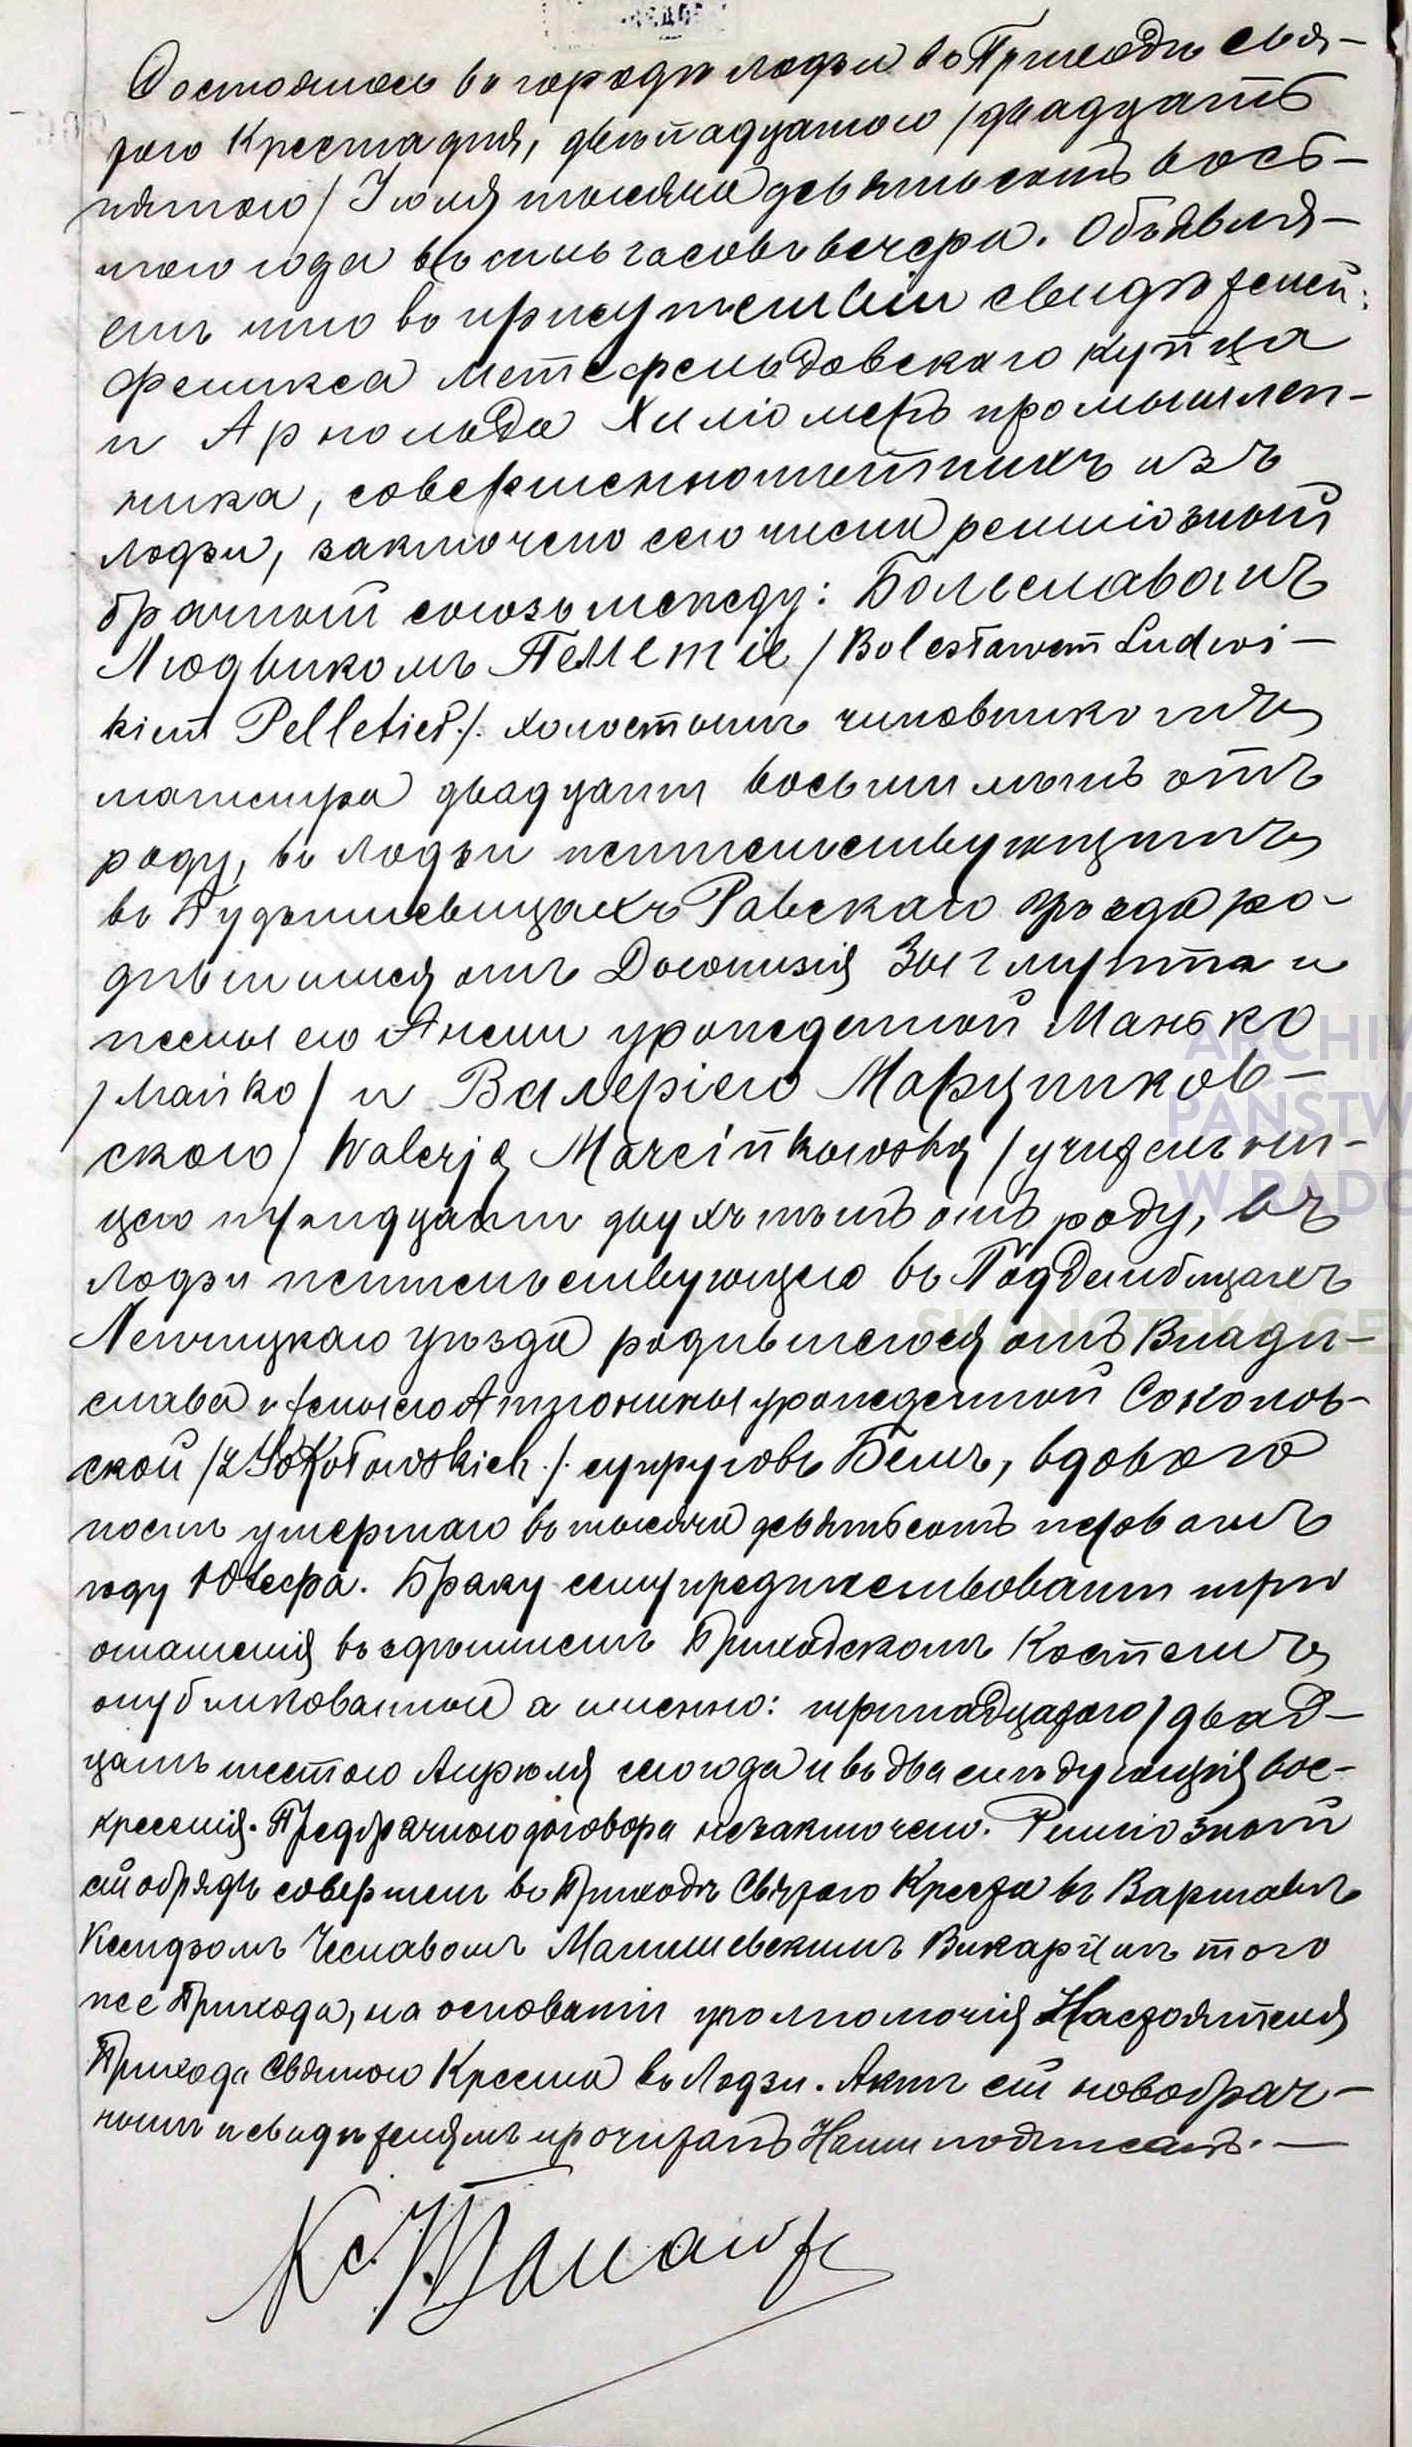 Состоялось въ городѣ Лодзи въ Приходѣ Свя-
таго Креста дня, двѣнадцатаго / двадцать
пятаго / Іюля тысяча девятьсотъ вось-
маго года въ пять часовъ вечера. Объявля-
емъ что въ присутствіи свидѣтелей:
Феликса Метефельдовскаго купца
и Арнольда промышлен-
ника, совершеннолѣтнихъ изъ
Лодзи, заключено сего числа религіозный
брачный союзъ между: Болеславомъ
Людвикомъ Пеллетіе / Bolesławem Ludwi-
kiem Pelletier /. холостымъ чиновникомъ
магистра двадцати восьми лѣтъ отъ
роду, въ Лодзи жительствующимъ
въ Равскаго уѣзда ро-
дившимся отъ Діонизія Зыгмунта и
жены его Анели урожденной Манько
/ Mańko / и Валеріею Марцинков-
скою / Walerją Marcinkowską / учительни-
цею тридцати двухъ лѣтъ отъ роду, въ
Лодзи жительствующею въ Поддембицахъ
Ленчицкаго уѣзда родившеюся отъ Влади-
слава и жены его Антонины урожденной Соколов-
ской / z Sokołowskich /. супруговъ Бемъ, вдовою
послѣ умершаго въ тысяча девятьсотъ первомъ
году Юзефа. Браку сему предшествовали три
оглашенія въ здѣшнемъ Приходскомъ Костелѣ
опубликованныя а именно: тринадцатаго / двад-
цать шестого Апрѣля сего года и въ два слѣдующія вос-
кресенія. Предбрачнаго договора незаключено. Религіозный
сій обрядъ совершенъ въ Приходѣ Святаго Креста въ Варшавѣ
Ксендзомъ Чеславомъ Малишевскимъ Викаріемъ того
же Прихода, на основаніи уполномочія Настоятеля
Прихода Святаго Креста въ Лодзи. Актъ сей новобрач-
нымъ и свидѣтелямъ прочитанъ Нами подписанъ. —